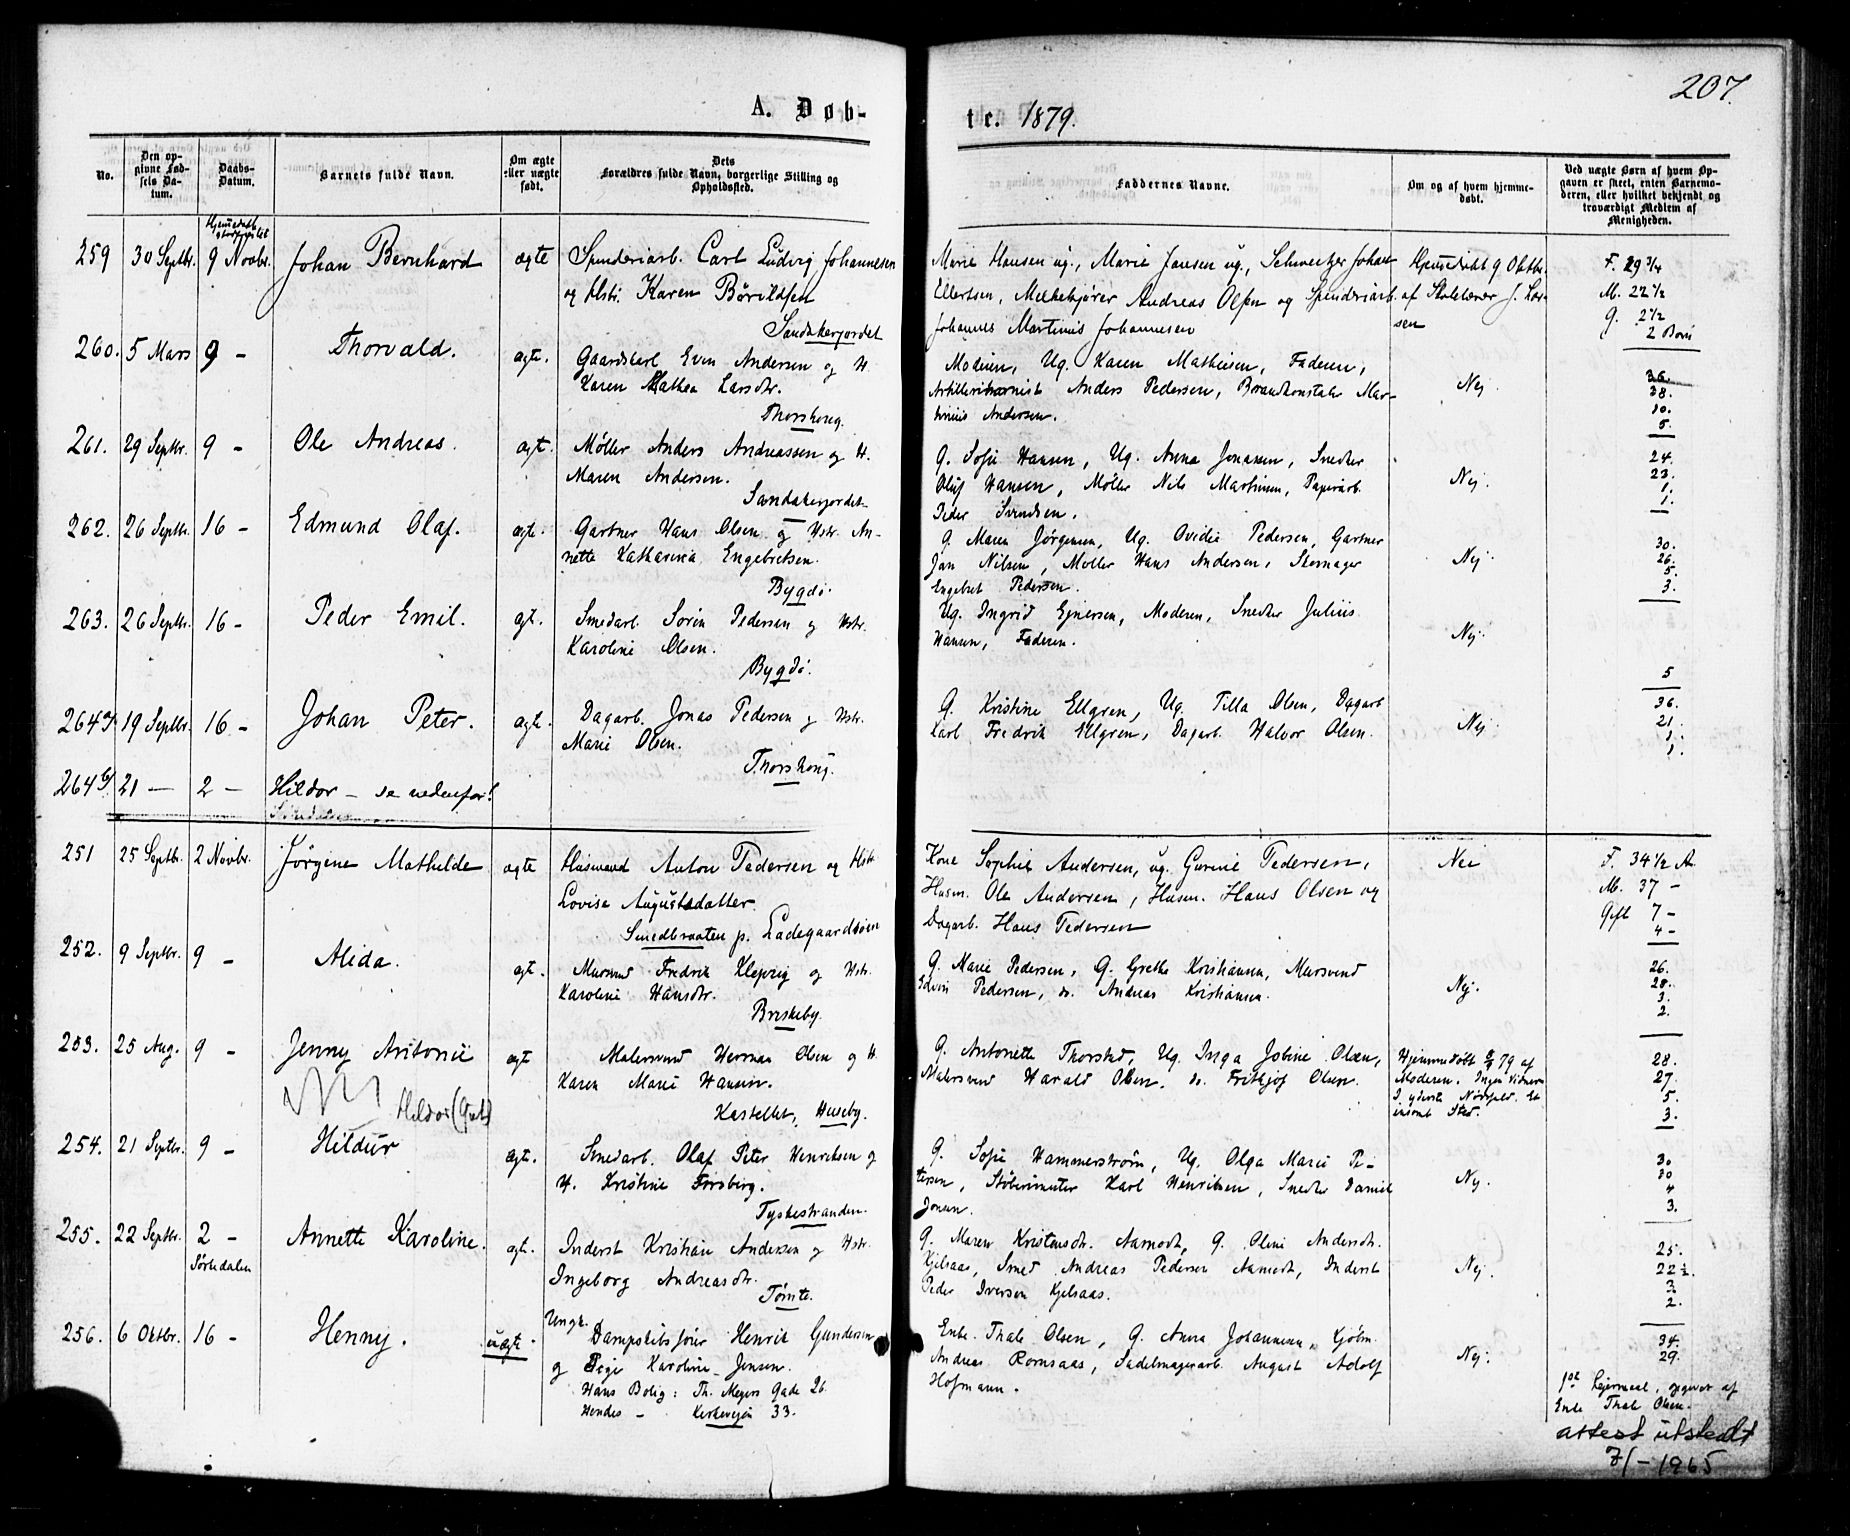 207.
A. Døb-
te. 1879.
No.
Den op-
givne Fød-
sels Da-
tum.
Daabs-
Datum.
Barnets fulde Navn.
Om ægte
eller uægte
født.
Dets
Forældres fulde Navn, borgerlige Stilling og
Opholdssted.
Faddernes Navne.
Om og af hvem hjemme-
døbt.
Ved uægte Børn af hvem Op-
gaven er skeet, enten Barnemo-
deren, eller hvilket bekjendt og
troværdigt Medlem af
Menigheden.
259 30 Septbr. 9 Novbr. Johan Bernhard ægte Spinderiarb. Carl Ludvig Johannesen
og Hstr. Karen Börildsen
Sandakerjordet
Marie Hansen ug., Marie Jansen ug., Schweitzer Johan
Ellertsen, Melkekjører Andreas Olsen og Spinderiarb.
Johannes Martinus Johannesen
Hjemmedøbt 9 Oktbr.
af Skolelærer J. Lar-
sen
F. 29 3/4
M. 22 1/2
g. 2 1/2
2 Børn
260. 5 Mars 9 - Thorvald. ægte. Gaardskarl Even Andersen og H.
Karen Mathea Larsdtr.
Thorshoug.
Moderen, Ug. Karen Mathiesen, Faderen,
Anders Pedersen, Brandkonstabe Mar-
tinius Andersen.
Nej.
36.
38.
10.
5.
261. 29 Septbr. 9 - Ole Andreas. ægt. Møller Anders Andreassen og H.
Maren Andersen.
Sandakerjordet
G. Sofie Hansen, Ug. Anna Jonassen, Snedker
Oluf Hansen, Møller Nils Martinsen, Papirarb.
Peder Svendsen.
Nej.
24.
23.
1.
1.
262. 26 Septbr. 16 - Edmund Olaf. ægte. Gartner Hans Olsen og Hstr. An-
nette Katharina Engebretsen.
Bygdø.
G. Maren Jørgensen, Ug. Ovidia Pedersen, Gartner
Jan Nilsen, Møller Hans Andersen, Skomager
Engebret Pedersen.
Nej.
30.
26.
5.
3.
263. 26 Septbr. 16 - Peder Emil. ægt. Smedarb. Sørin Pedersen og Hstr.
Karoline Olsen.
Bygdø.
Ug. Ingrid Ejnersen, Moderen, Snedker Julius
Hansen, Faderen.
Nej.
5
264 a) 19 Septbr. 16 - Johan Peter. ægte. Dagarb. Jonas Pedersen og Hstr.
Marie Olsen.
Thorshoug.
G. Kristine Ellgren, Ug. Tilla Olsen, Dagarb
Karl Fredrik Ellgren, Dagarb. Halvor Olsen.
Nej
36.
21.
1.
1.
264 b) 21 — 2 — Hildor - se nedenfor!
251 25 Septbr. 2 Novbr. Jörgine Mathilde ægte Husmand Anton Pedersen og Hstr
Lovise Augustsdatter
Smedbraaten p. Ladegaardsöen
Kone Sophie Andersen, ug. Gurine Pedersen,
Husm. Ole Andersen, Husm. Hans Olsen og
Dagarb. Hans Pedersen
Nei
F. 34 1/2 A
M. 37 -
Gift 7 -
4 -
252. 9 Septbr. 9 - Alida. ægt. Mursvend Fredrik Klepzig og Hstr.
Karoline Hansdtr.
Briskeby.
G. Marie Pedersen, G. Grethe Kristiansen, Mursvend
Edvin Pedersen, do. Andreas Kristiansen.
Nej.
26.
28.
3.
2.
253. 25 Aug. 9 - Jenny Antonie ægt Malersvend Herman Olsen og H.
Karen Marie Hansen.
Kastellet, Huseby.
G. Antonette Thorstad, Ug. Inga Jobine Olsen,
Malersvend Harald Olsen, do. Frithjof Olsen.
Hjemmedøbt 2/9 79 af
Moderen. Ingen Vidner.
I yderste Nødsfald. Et
ensomt Sted.
28.
27.
5.
3.
Hildor (Gut)
254. 21 Septbr. 9 - Hildur ægt. Smedarb. Olaf Peter Henriksen og
H. Kristine Forsberg.
Tyskestranden.
G. Sofie Hammerstrøm, Ug. Olga Marie Pe-
tersen, Støberimester Karl Henriksen, Snedker Daniel
Jonsen.
Nej.
30
30
4
3.
255. 22 Septbr. 2 - Annette Karoline. ægt. Inderst Kristian Andersen og Hstr.
Sørkedalen
Ingeborg Andreasdtr.
Tømte.
G. Maren Kristensdtr. Aamodt, G. Oline Andersdtr.
Kjelsaas, Smed Andreas Pedersen Aamodt, Inderst
Peder Iversen Kjelsaas.
Nej.
25.
22 1/2.
3.
2.
256. 6 Oktbr. 16 - Henny. uægte. Ungk. Dampskibsfører Henrik Gundersen
og Pige Karoline Jensen.
Hans Bolig: Th. Meyers Gade 26.
Hendes — Kirkevejen 33.
Enke Thale Olsen, G. Anna Johannesen, Kjøbm.
Andreas Romsaas, Sadelmagerarb. August Adolf
Hofmann.
Nej.
34.
29.
1ste Lejermaal, opgivet af
Enke Thale Olsen.
attest utstedt
7/1 - 1965